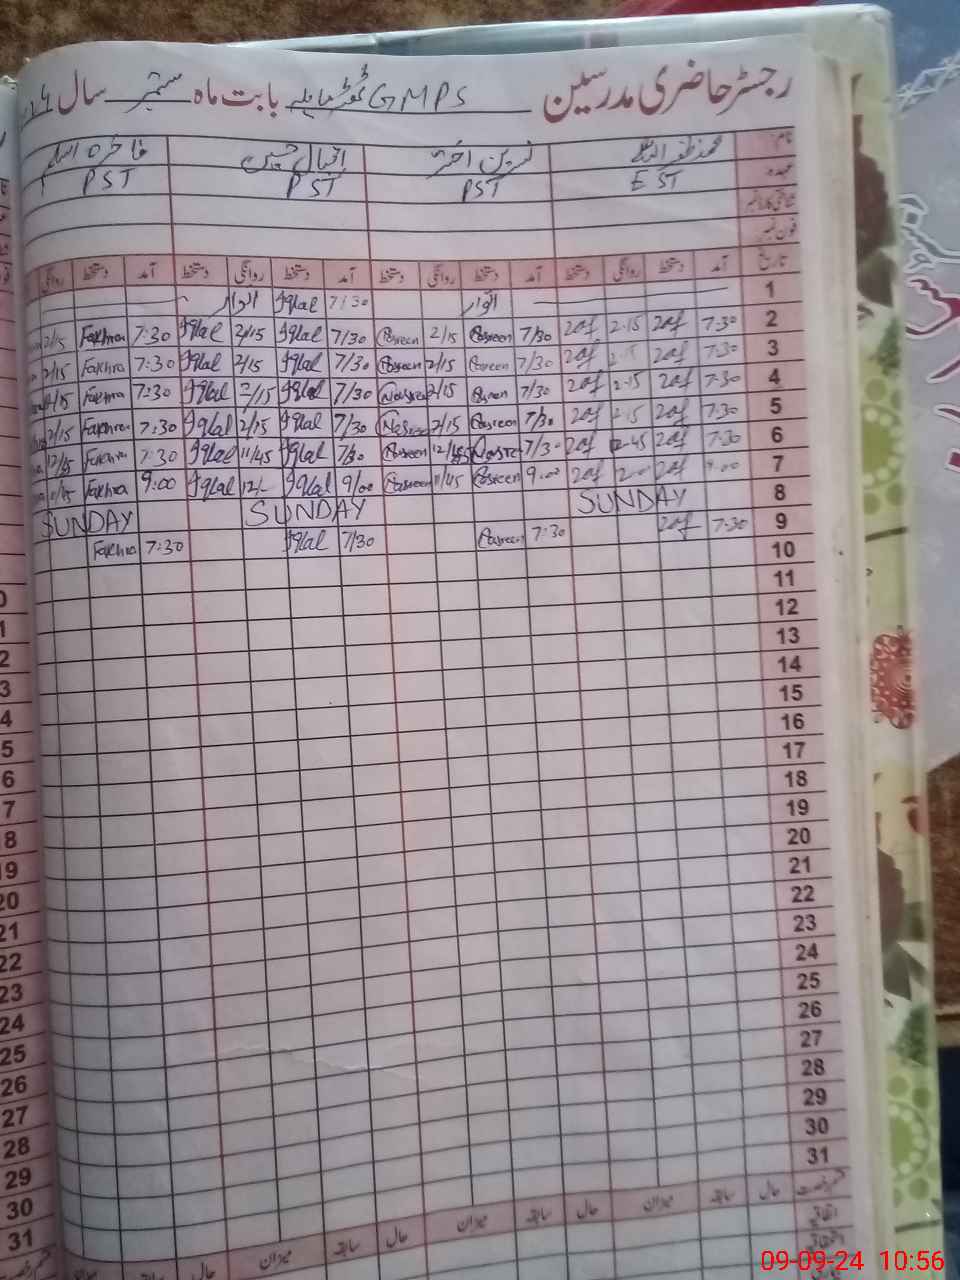 رجسٹر حاضری مدرسین GMPS بابت ماہ ستمبر سال
نام محمد ظفر اللہ نسرین اختر اقبال حسین فاخرہ اسلم
عہدہ EST PST PST PST
شناختی کارڈ نمبر
فون نمبر
تاریخ آمد دستخط روانگی دستخط آمد دستخط روانگی دستخط آمد دستخط روانگی دستخط آمد دستخط روانگی
1 اتوار 7/30 Iqbal اتوار
2 7:30 Zaf 2-15 Zaf 7/30 Nasreen 2/15 Nasreen 7/30 Iqbal 2/15 Iqbal 7:30 Fakhra 2/15
3 7:30 Zaf 2-15 Zaf 7/30 Nasreen 2/15 Nasreen 7/30 Iqbal 2/15 Iqbal 7:30 Fakhra 2/15
4 7:30 Zaf 2-15 Zaf 7/30 Nasreen 2/15 Nasreen 7/30 Iqbal 2/15 Iqbal 7:30 Fakhra 2/15
5 7:30 Zaf 2-15 Zaf 7/30 Nasreen 2/15 Nasreen 7/30 Iqbal 2/15 Iqbal 7:30 Fakhra 2/15
6 7:30 Zaf 12-45 Zaf 7/30 Nasreen 12/45 Nasreen 7/30 Iqbal 11/45 Iqbal 7:30 Fakhra 12/45
7 9:00 Zaf Zaf 9:00 Nasreen 11/45 Nasreen 9/00 Iqbal 12/- Iqbal 9:00 Fakhra
8 SUNDAY SUNDAY SUNDAY
9 7:30 Zaf 7:30 Nasreen 7/30 Iqbal 7:30 Fakhra
10
11
12
13
14
15
16
17
18
19
20
21
22
23
24
25
26
27
28
29
30
31
قسم رخصت حال سابقہ میزان حال سابقہ میزان حال سابقہ میزان حال سابقہ
اتفاقیہ
استحقاقیہ
09-09-24 10:56